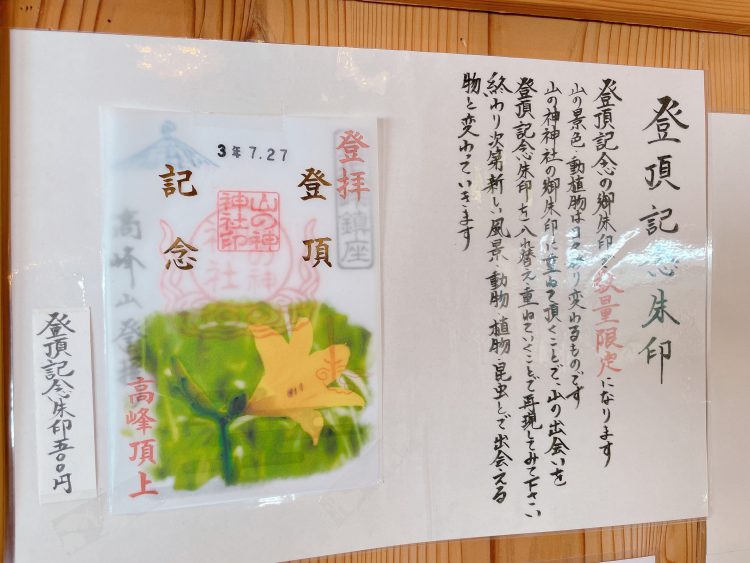 登頂記念朱印
登頂記念の御朱印は数量限定になります
山の景色 動植物は日々移り変わるものです
山の神神社の御朱印に重ねて頂くことで、山の出会いを
登頂記念朱印を入れ替え重ねていくことで再現してみて下さい
終わり次第新しい風景、動物、植物、昆虫とで出会える
物と変わっていきます
登拝
鎮座
登頂
3年7.27
山の神
神社印
神社
記念
高峰山登
高峰頂上
登頂記念朱印五〇〇円